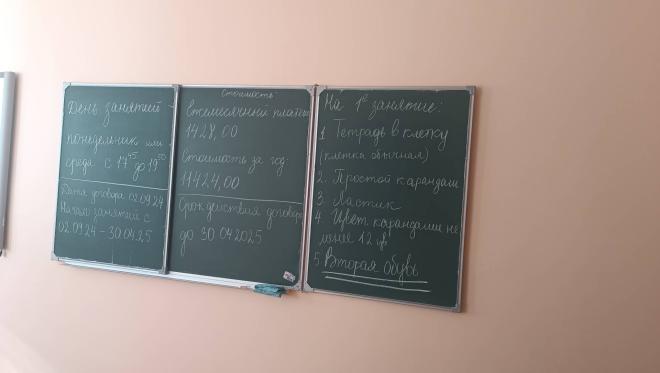 День занятий
понедельник или
среда с 17⁴⁵ до 19⁵⁰
Дата договора 02.09.24
Начало занятий с
02.09.24 - 30.04.25
Стоимость
Ежемесячный платеж
1428,00
Стоимость за год:
11424,00
Срок действия договора
до 30.04.2025
На 1ᵉ занятие:
1. Тетрадь в клетку
(клетка обычная)
2. Простой карандаш
3. Ластик
4. Цвет. карандаши не
менее 12 цв!
5. Вторая обувь